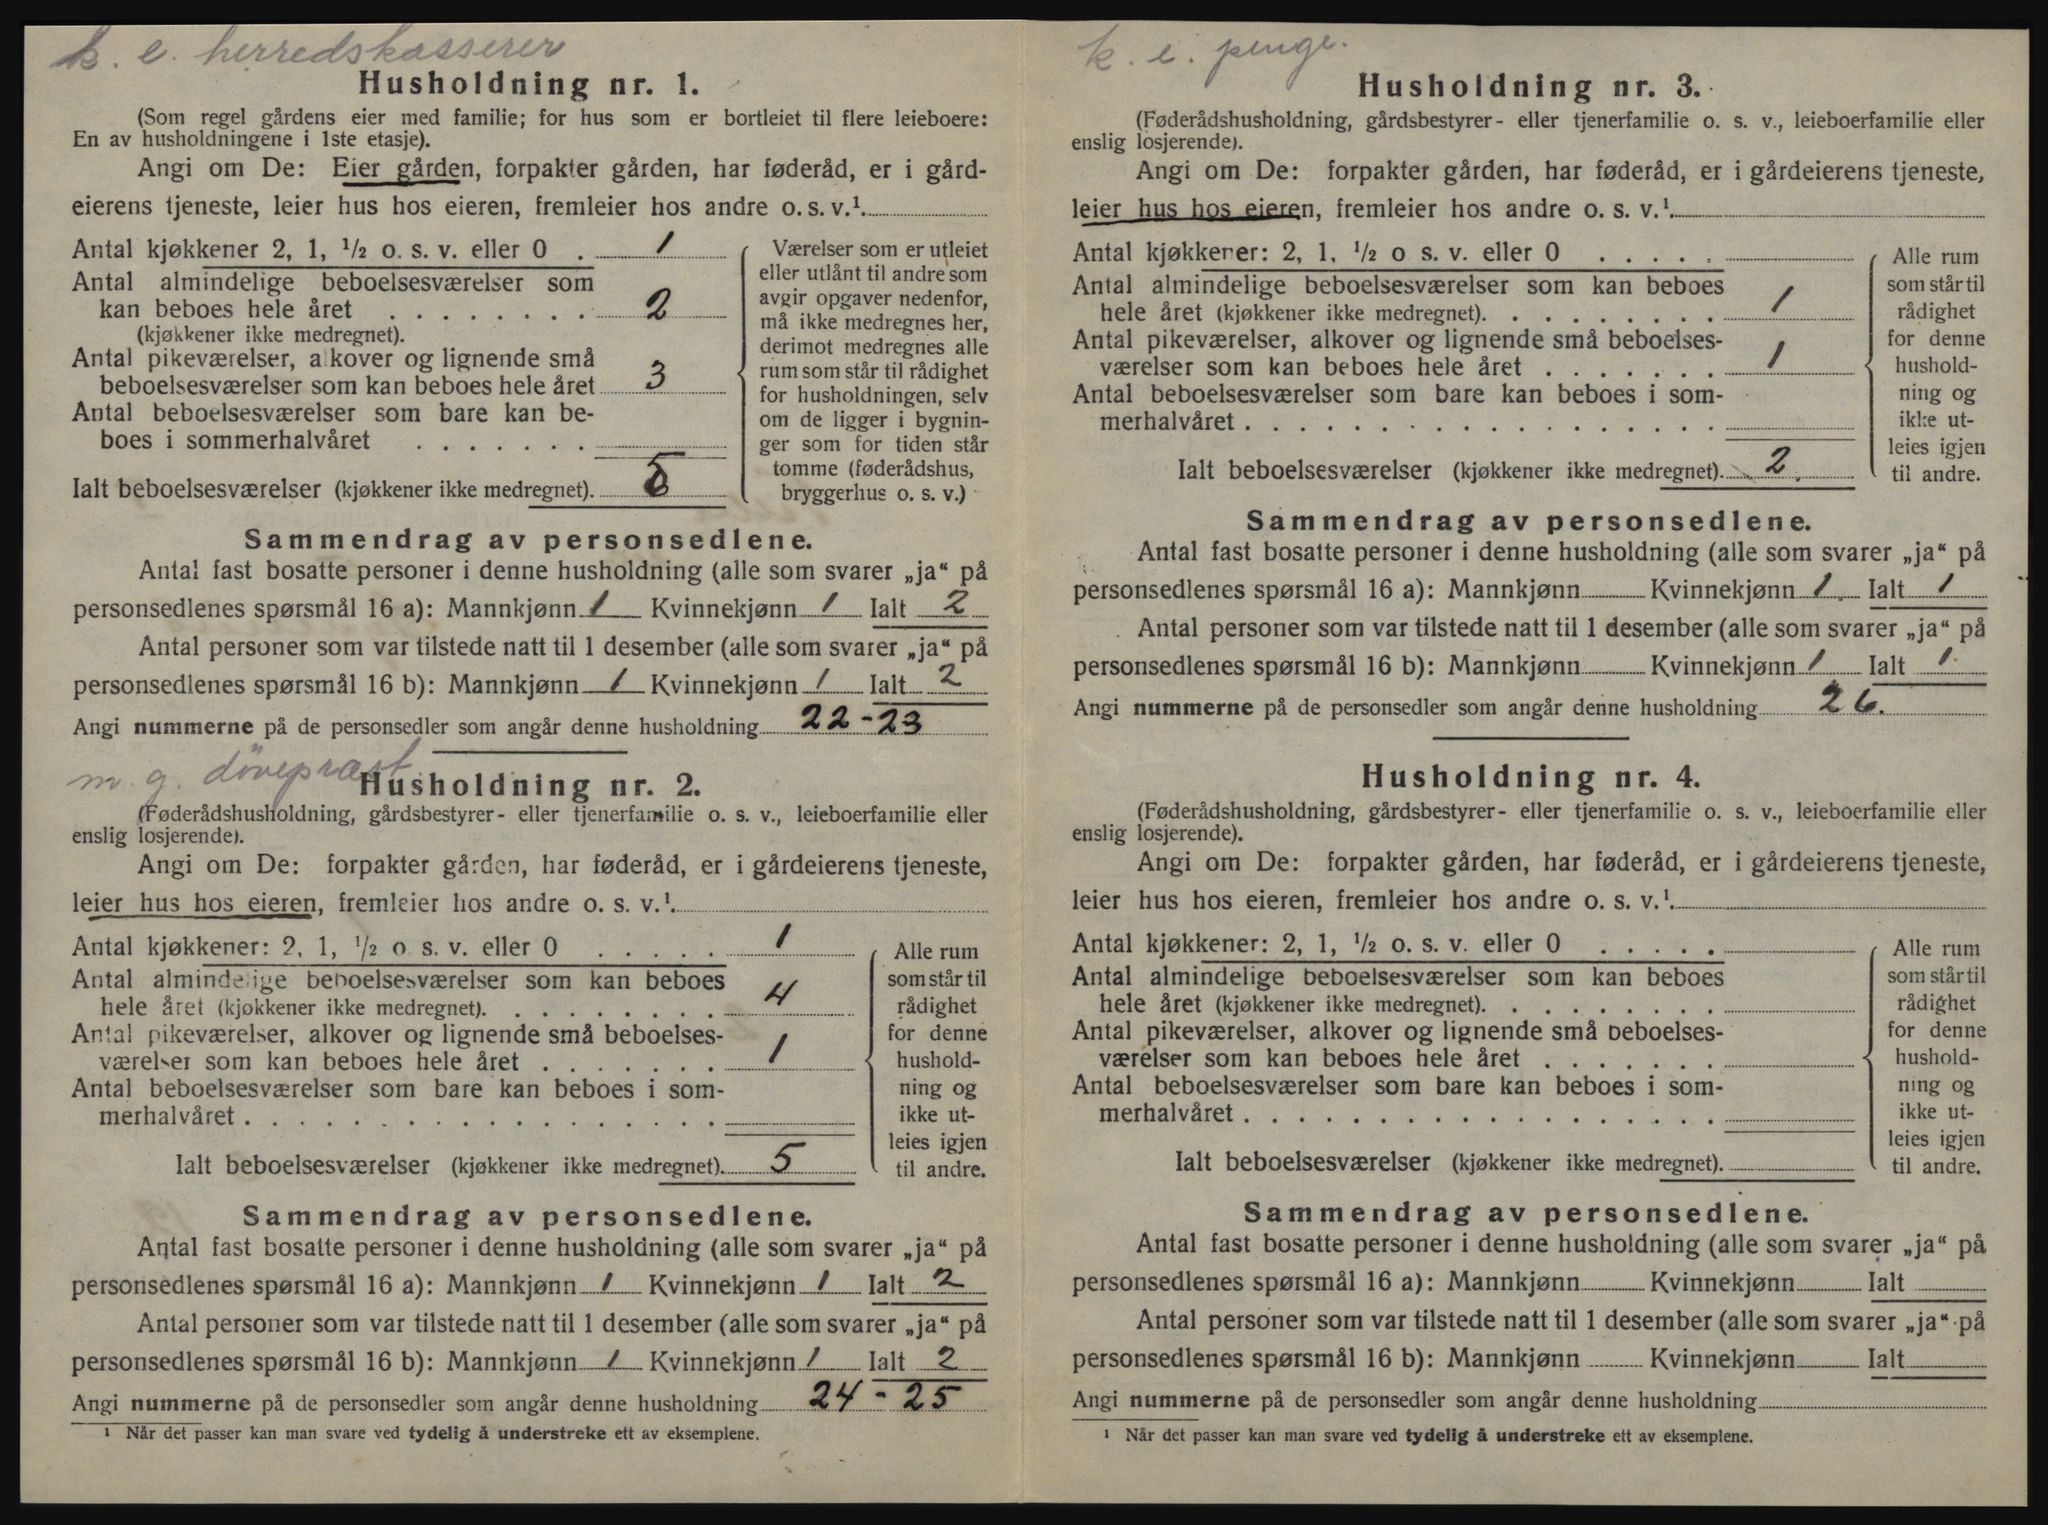 k. e. herredskasserer
Husholdning nr. 1.
(Som regel gårdens eier med familie; for hus som er bortleiet til flere leieboere:
En av husholdningene i 1ste etasje).
Angi om De: Eier gården, forpakter gården, har føderåd, er i gård-
eierens tjeneste, leier hus hos eieren, fremleier hos andre o. s. v.¹.
Antal kjøkkener 2, 1, ½ o. s. v. eller 0 . 1
Antal almindelige beboelsesværelser som
kan beboes hele året . . . . . . . . 2
(kjøkkener ikke medregnet).
Antal pikeværelser, alkover og lignende små
beboelsesværelser som kan beboes hele året 3
Antal beboelsesværelser som bare kan be-
boes i sommerhalvåret . . . . . . .
Ialt beboelsesværelser (kjøkkener ikke medregnet). 5
Værelser som er utleiet
eller utlånt til andre som
avgir opgaver nedenfor,
må ikke medregnes her,
derimot medregnes alle
rum som står til rådighet
for husholdningen, selv
om de ligger i bygnin-
ger som for tiden står
tomme (føderådshus,
bryggerhus o. s. v.)
Sammendrag av personsedlene.
Antal fast bosatte personer i denne husholdning (alle som svarer „ja“ på
personsedlenes spørsmål 16 a): Mannkjønn 1 Kvinnekjønn 1 Ialt 2
Antal personer som var tilstede natt til 1 desember (alle som svarer „ja“ på
personsedlenes spørsmål 16 b): Mannkjønn 1 Kvinnekjønn 1 Ialt 2
Angi nummerne på de personsedler som angår denne husholdning 22-23
m. g. dövepræst
Husholdning nr. 2.
(Føderådshusholdning, gårdsbestyrer- eller tjenerfamilie o. s. v., leieboerfamilie eller
enslig losjerende).
Angi om De: forpakter gården, har føderåd, er i gårdeierens tjeneste,
leier hus hos eieren, fremleier hos andre o. s. v.¹.
Antal kjøkkener: 2, 1, ½ o. s. v. eller 0 . . . . . 1
Antal almindelige beboelsesværelser som kan beboes
hele året (kjøkkener ikke medregnet). . . . . . . . . 4
Antal pikeværelser, alkover og lignende små beboelses-
værelser som kan beboes hele året . . . . . . . 1
Antal beboelsesværelser som bare kan beboes i som-
merhalvåret . . . . . . . . . . . . . . . . .
Ialt beboelsesværelser (kjøkkener ikke medregnet). 5
Alle rum
som står til
rådighet
for denne
hushold-
ning og
ikke ut-
leies igjen
til andre.
Sammendrag av personsedlene.
Antal fast bosatte personer i denne husholdning (alle som svarer „ja“ på
personsedlenes spørsmål 16 a): Mannkjønn 1 Kvinnekjønn 1 Ialt 2
Antal personer som var tilstede natt til 1 desember (alle som svarer „ja“ på
personsedlenes spørsmål 16 b): Mannkjønn 1 Kvinnekjønn 1 Ialt 2
Angi nummerne på de personsedler som angår denne husholdning 24 - 25
¹ Når det passer kan man svare ved tydelig å understreke ett av eksemplene.
k. e. penge.
Husholdning nr. 3.
(Føderådshusholdning, gårdsbestyrer- eller tjenerfamilie o. s. v., leieboerfamilie eller
enslig losjerende).
Angi om De: forpakter gården, har føderåd, er i gårdeierens tjeneste,
leier hus hos eieren, fremleier hos andre o. s. v.¹.
Antal kjøkkener: 2, 1, ½ o s. v. eller 0 . . . . .
Antal almindelige beboelsesværelser som kan beboes
hele året (kjøkkener ikke medregnet). . . . . . . . . 1
Antal pikeværelser, alkover og lignende små beboelses-
værelser som kan beboes hele året . . . . . . . 1
Antal beboelsesværelser som bare kan beboes i som-
merhalvåret . . . . . . . . . . . . . . . . .
Ialt beboelsesværelser (kjøkkener ikke medregnet). 2.
Alle rum
som står til
rådighet
for denne
hushold-
ning og
ikke ut-
leies igjen
til andre.
Sammendrag av personsedlene.
Antal fast bosatte personer i denne husholdning (alle som svarer „ja“ på
personsedlenes spørsmål 16 a): Mannkjønn Kvinnekjønn 1 Ialt 1
Antal personer som var tilstede natt til 1 desember (alle som svarer „ja“ på
personsedlenes spørsmål 16 b): Mannkjønn Kvinnekjønn 1 Ialt 1
Angi nummerne på de personsedler som angår denne husholdning 26.
Husholdning nr. 4.
(Føderådshusholdning, gårdsbestyrer- eller tjenerfamilie o. s. v., leieboerfamilie eller
enslig losjerende).
Angi om De: forpakter gården, har føderåd, er i gårdeierens tjeneste,
leier hus hos eieren, fremleier hos andre o. s. v.¹.
Antal kjøkkener: 2, 1, ½ o. s. v. eller 0 . . . . .
Antal almindelige beboelsesværelser som kan beboes
hele året (kjøkkener ikke medregnet). . . . . . . . .
Antal pikeværelser, alkover og lignende små beboelses-
værelser som kan beboes hele året . . . . . . .
Antal beboelsesværelser som bare kan beboes i som-
merhalvåret . . . . . . . . . . . . . . . . .
Ialt beboelsesværelser (kjøkkener ikke medregnet).
Alle rum
som står til
rådighet
for denne
hushold-
ning og
ikke ut-
leies igjen
til andre.
Sammendrag av personsedlene.
Antal fast bosatte personer i denne husholdning (alle som svarer „ja“ på
personsedlenes spørsmål 16 a): Mannkjønn Kvinnekjønn Ialt
Antal personer som var tilstede natt til 1 desember (alle som svarer „ja“ på
personsedlenes spørsmål 16 b): Mannkjønn Kvinnekjønn Ialt
Angi nummerne på de personsedler som angår denne husholdning
¹ Når det passer kan man svare ved tydelig å understreke ett av eksemplene.